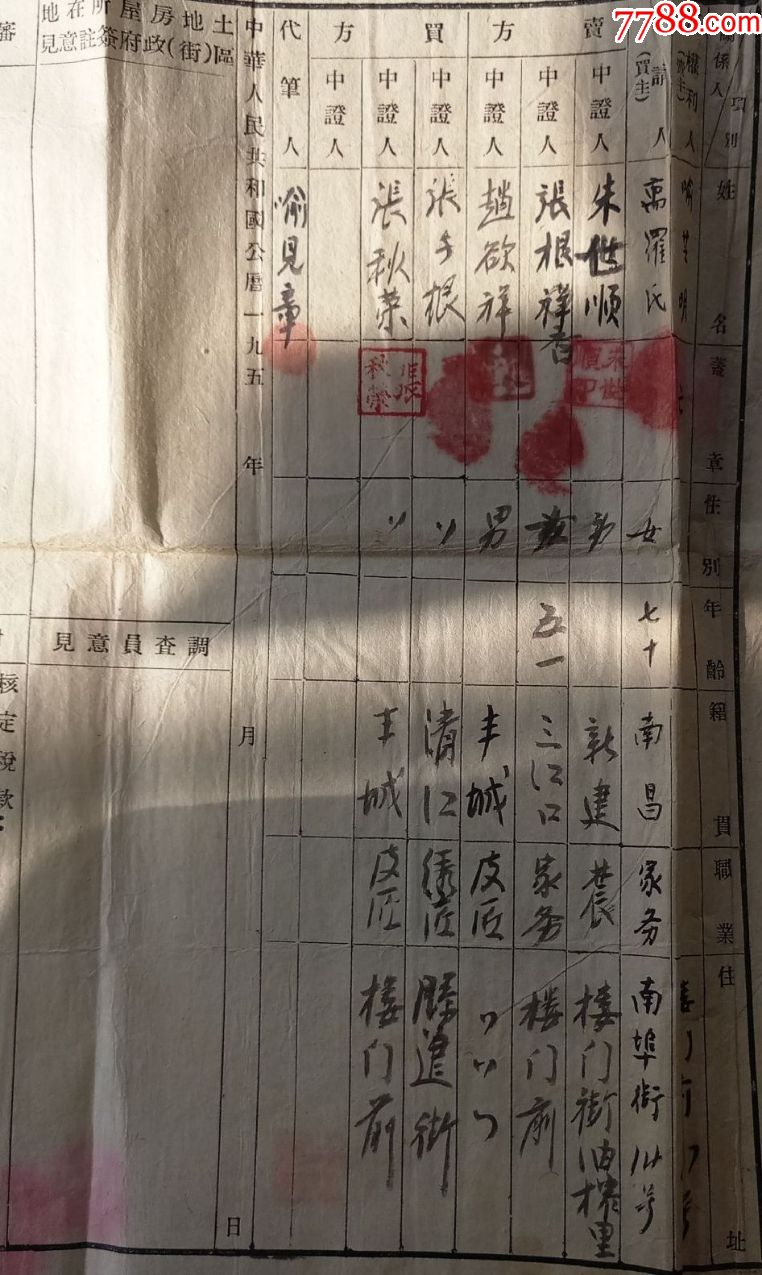 7788.com
關係人 項別 姓名 蓋章 性別 年齡 籍貫 職業 住址
權利人 喻 明
人 萬羅氏 女 七十 南昌 家务 南埠街14号
(買主)
賣方 中證人 朱世順 朱世順印 男 新建 農 楼门街油榨里
中證人 張根祥 五一 三江口 家务 楼门前
中證人 趙欲祥 男 丰城 皮匠 〃〃〃
買方 中證人 張 根 〃 清江 匠 街
中證人 張秋荣 張秋榮 〃 丰城 皮匠 楼门前
中證人
代筆人 喻見章
中華人民共和國公曆一九五 年 月 日
土地房屋所在地
區(街)政府簽註意見
調查員意見
審
核定稅款: